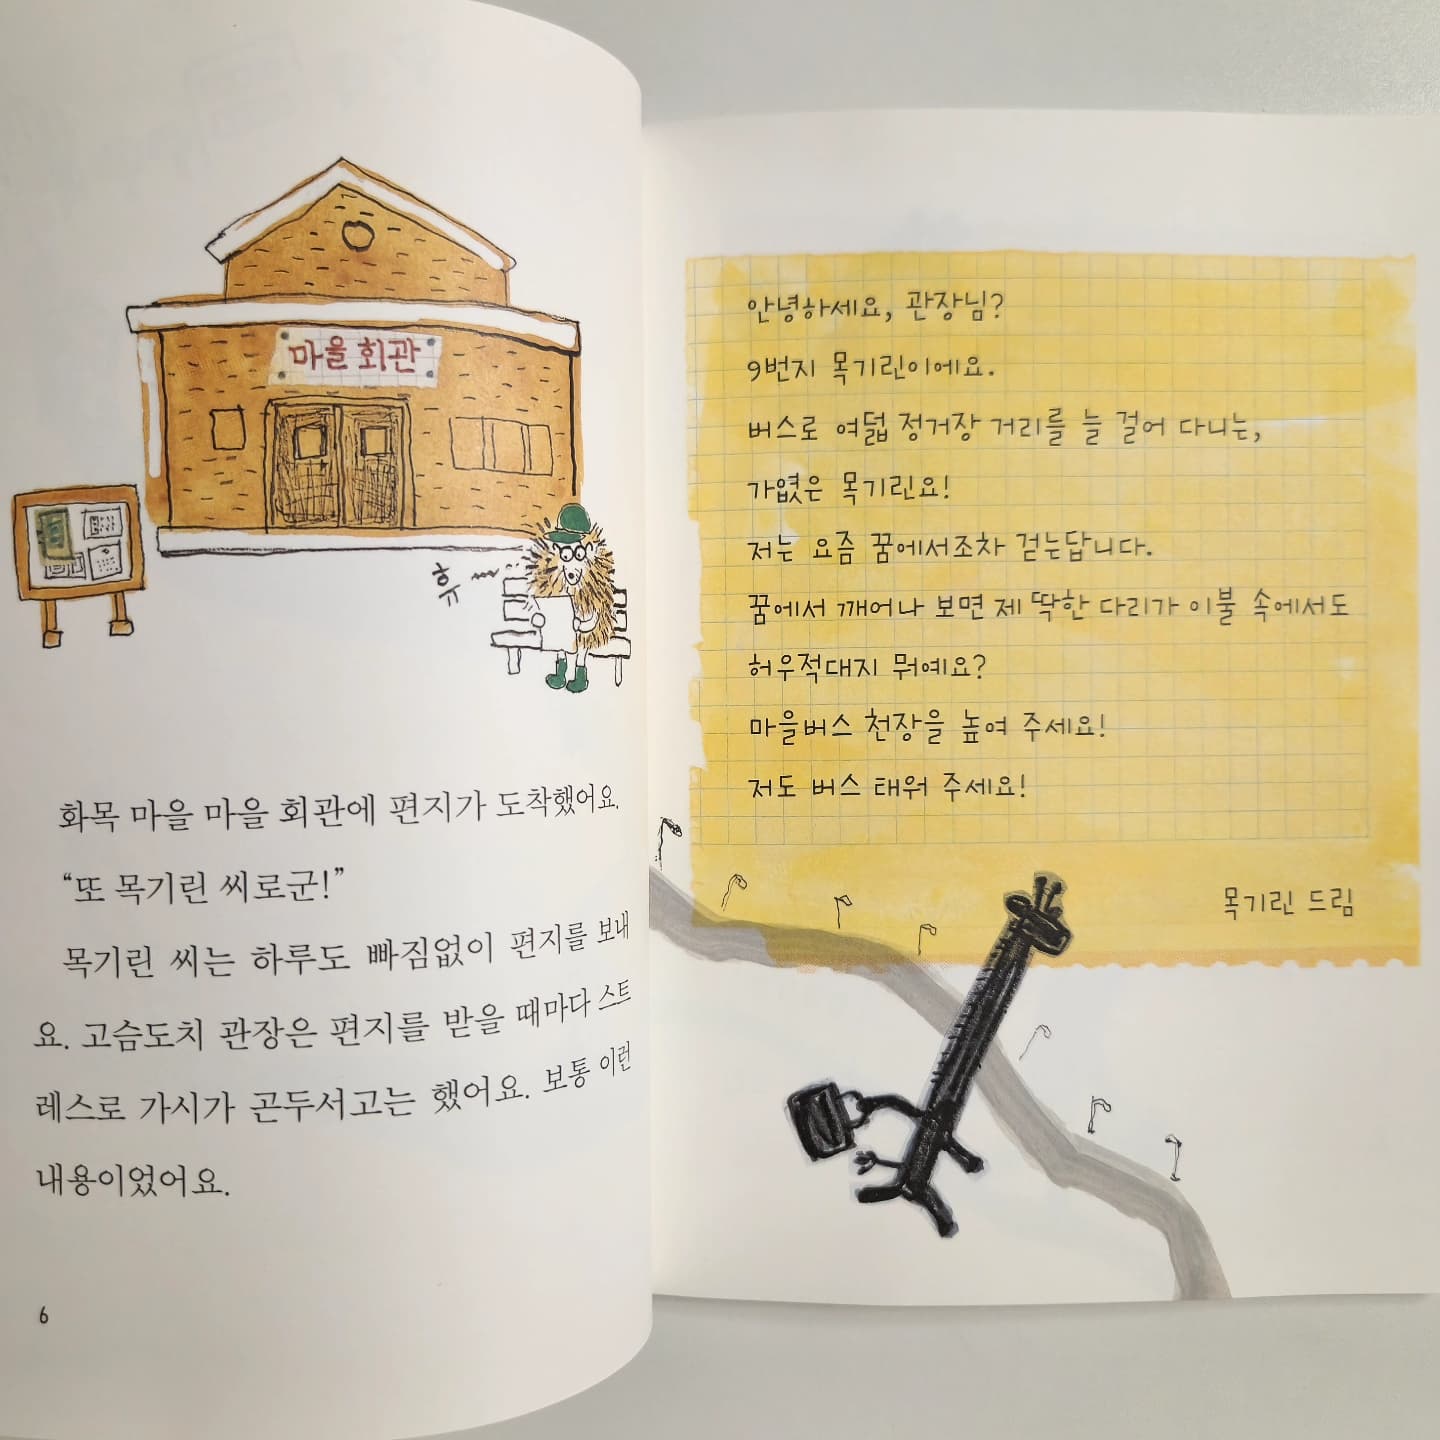 마을 회관
휴
화목 마을 마을 회관에 편지가 도착했어요.
“또 목기린 씨로군!”
목기린 씨는 하루도 빠짐없이 편지를 보내
요. 고슴도치 관장은 편지를 받을 때마다 스트
레스로 가시가 곤두서고는 했어요. 보통 이런
내용이었어요.
6
안녕하세요, 관장님?
9번지 목기린이에요.
버스로 여덟 정거장 거리를 늘 걸어 다니는,
가엾은 목기린요!
저는 요즘 꿈에서조차 걷는답니다.
꿈에서 깨어나 보면 제 딱한 다리가 이불 속에서도
허우적대지 뭐예요?
마을버스 천장을 높여 주세요!
저도 버스 태워 주세요!
목기린 드림